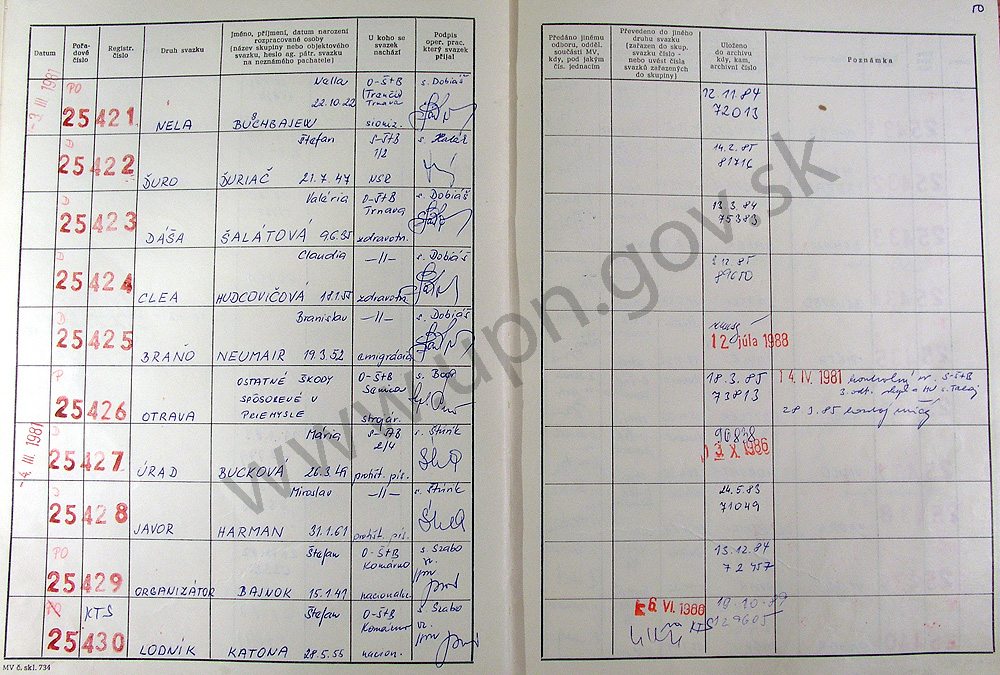 50
Datum
Pořa-
dové
číslo
Registr.
číslo
Druh svazku
Jméno, příjmení, datum narození
rozpracované osoby
(název skupiny nebo objektového
svazku, heslo ag. pátr. svazku
na neznámého pachatele)
U koho se
svazek
nachází
Podpis
oper. prac.
který svazek
přijal
Předáno jinému
odboru, odděl.
součásti MV,
kdy, pod jakým
čís. jednacím
Převedeno do jiného
druhu svazku
(zařazen do skup.
svazku číslo -
nebo uvést čísla
svazků zařazených
do skupiny)
Uloženo
do archivu
kdy, kam,
archivní číslo
Poznámka
-3. III. 1981
PO
25 421
NELA
Nella
22.10.22
BUCHBAJEW
O-ŠtB
(Trenčín)
Trnava
sioniz.
s. Dobiáš
12.11.84
72013
D
25 422
ĎURO
Štefan
ĎURIAČ 21.7.47
S-ŠtB
1/2
NSR
14.2.85
81716
D
25 423
DÁŠA
Valéria
ŠALÁTOVÁ 9.6.35
O-ŠtB
Trnava
zdravotn.
s. Dobiáš
13.3.84
75383
D
25 424
CLEA
Claudia
HUDCOVIČOVÁ 18.1.55
-//-
zdravotn.
s. Dobiáš
89650
D
25 425
BRAŇO
Branislav
NEUMAIR 19.3.52
-//-
emigrácia
s. Dobiáš
12 júla 1988
P
25 426
OTRAVA
OSTATNÉ ŠKODY
SPÔSOBENÉ V
PRIEMYSLE
O-ŠtB
Senica
strojár.
18.3.85
73813
14. IV. 1981
28.3.85
-4. III. 1981
D
25 427
ÚRAD
Mária
BUCKOVÁ 26.3.49
2/4
protišt. pís.
s. Štrik
90838
3. X. 1986
D
25 428
JAVOR
Miroslav
HARMAN 31.1.61
-//-
protišt. pís.
s. Štrik
24.5.83
71049
PO
25 429
ORGANIZÁTOR
Štefan
BAJNOK 15.1.41
O-ŠtB
Komárno
nacionalis.
s. Szabo
13.12.84
72457
PO KTS
25 430
LODNÍK
Štefan
KATONA 28.5.55
O-ŠtB
Komárno
nacion.
s. Szabo
6. VI. 1986
KTS
19.10.89
129605
MV č. skl. 734
www.upn.gov.sk